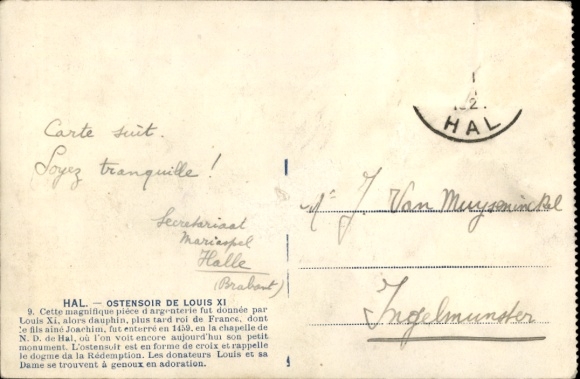 Carte suit.
Soyez tranquille !
Secretariaat
Mariaspel
Halle
(Brabant)
HAL. — OSTENSOIR DE LOUIS XI
9. Cette magnifique pièce d'argenterie fut donnée par
Louis XI, alors dauphin, plus tard roi de France, dont
le fils ainé Joachim, fut enterré en 1459, en la chapelle de
N. D. de Hal, où l'on voit encore aujourd'hui son petit
monument. L'ostensoir est en forme de croix et rappelle
le dogme da la Rédemption. Les donateurs Louis et sa
Dame se trouvent à genoux en adoration.
HAL
J Van Muysninckel
Ingelmunster